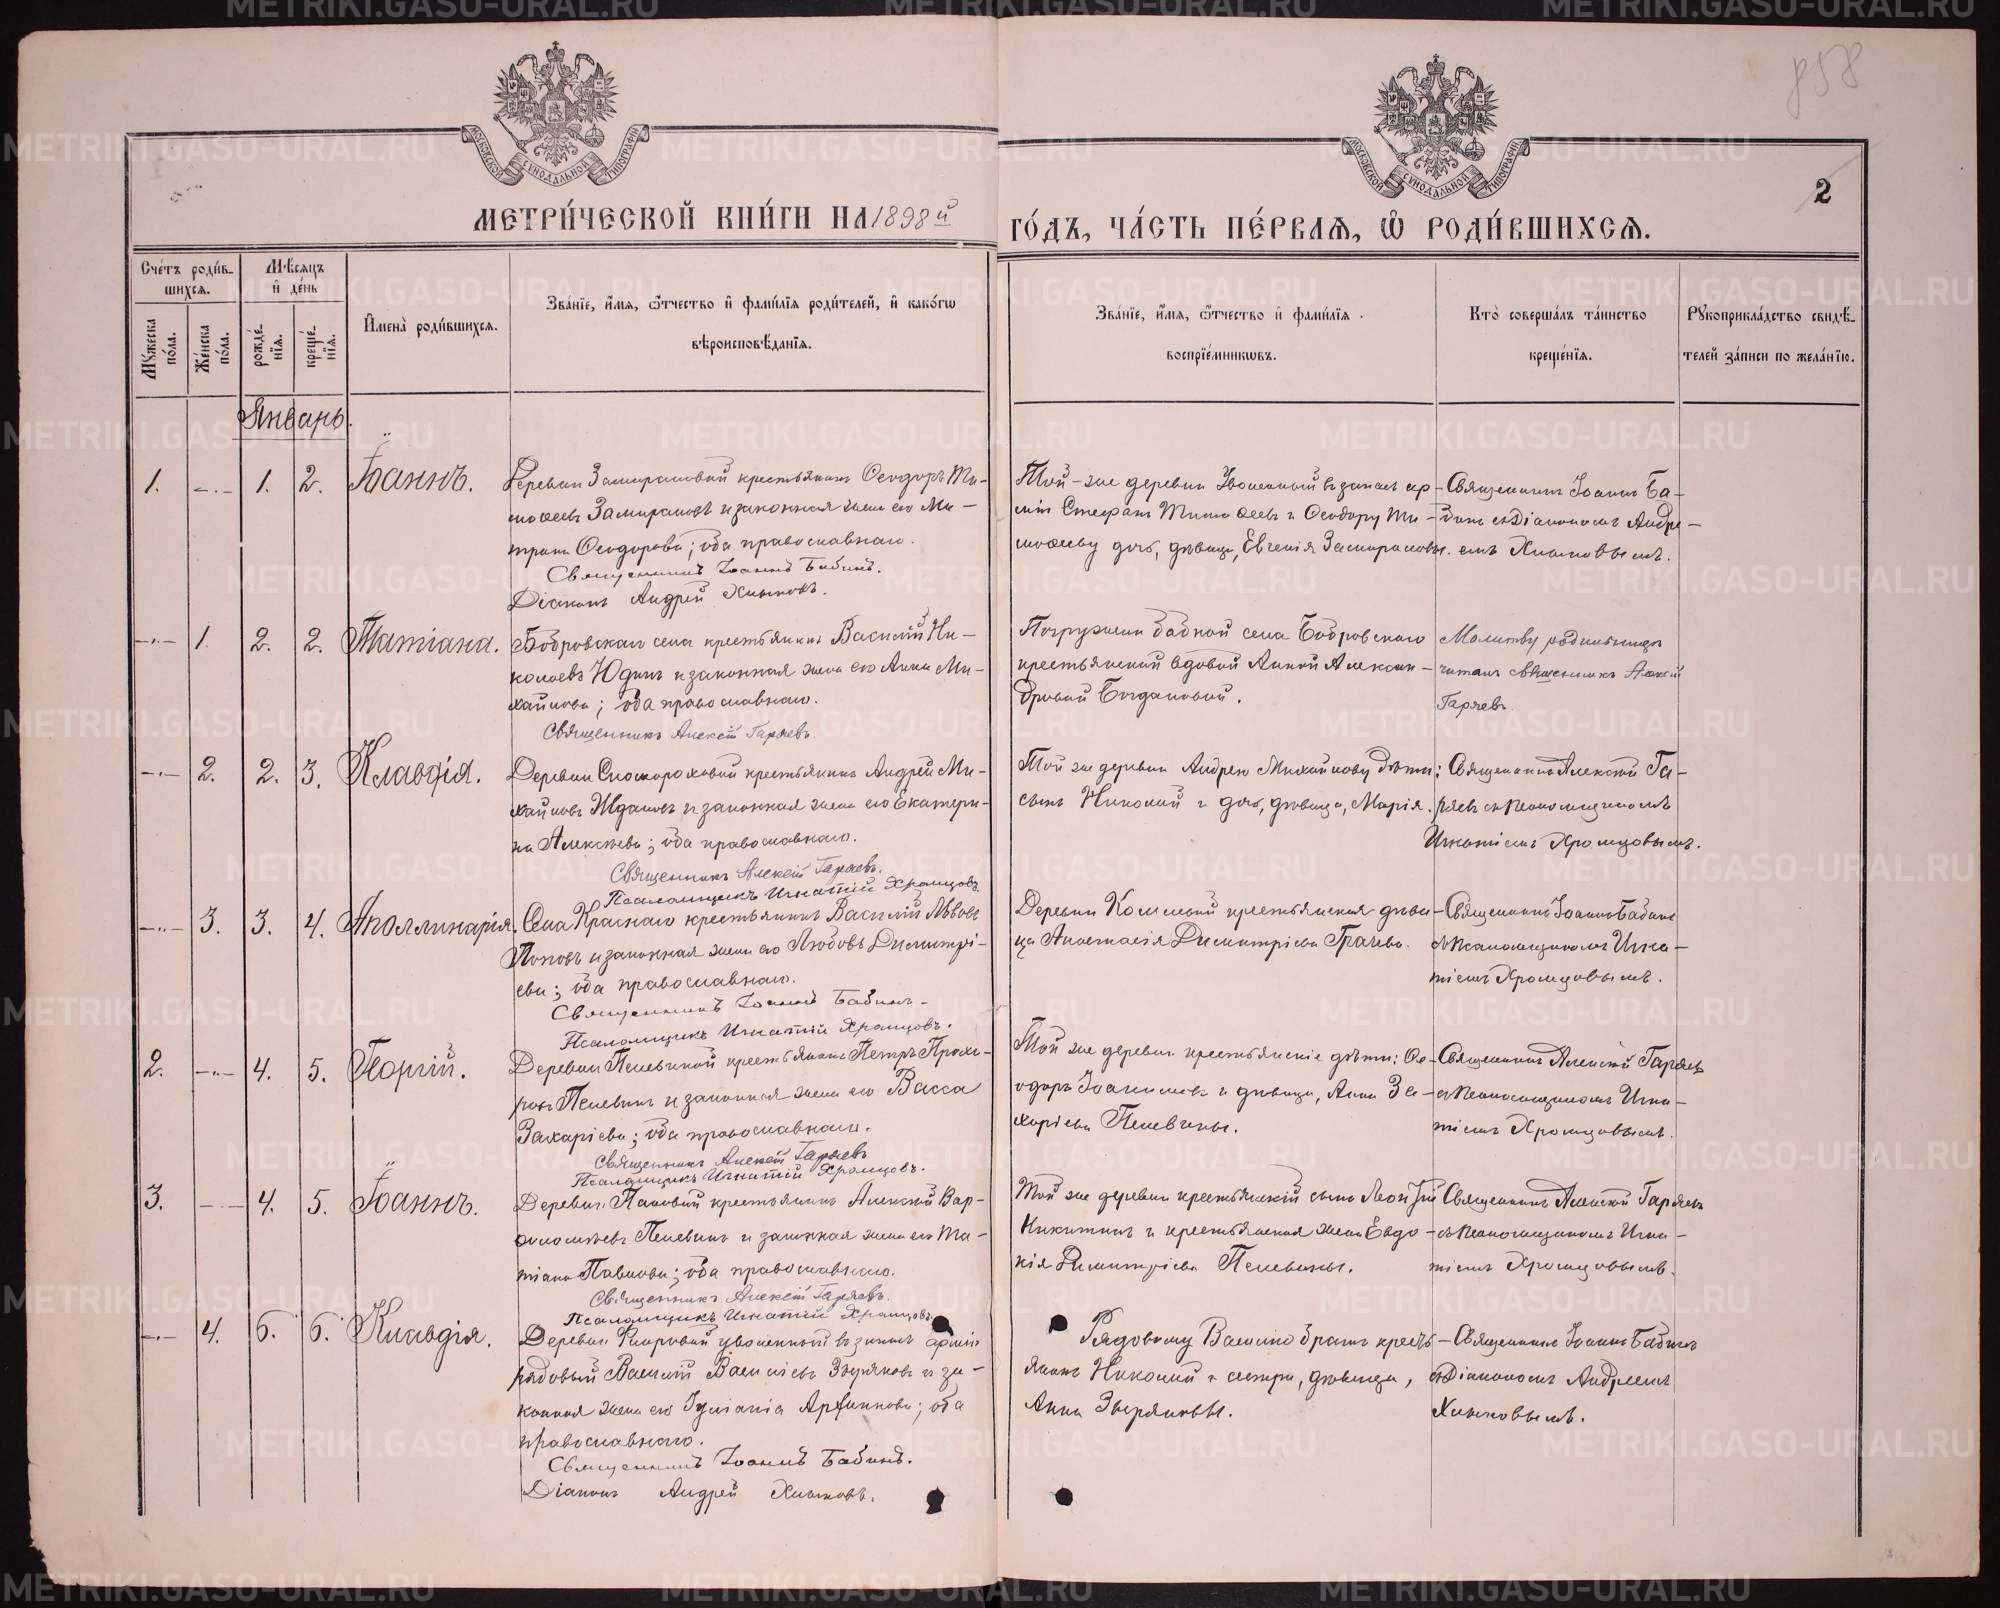 МОСКОВСКОЙ СѴНОДАЛЬНОЙ ТИПОГРАФІИ
МОСКОВСКОЙ СѴНОДАЛЬНОЙ ТИПОГРАФІИ
858
2
МЕТРИ́ЧЕСКОЙ КНИ́ГИ НА 1898й
ГО́ДЪ, ЧА́СТЬ ПЕ́РВАЯ, Ѡ РОДИ́ВШИХСЯ.
Сче́тъ роди́в-
шихся.
Мꙋ́жеска по́ла.
Же́нска по́ла.
Мѣ́сяцъ
и де́нь
рожде́-
нїя.
креще́-
нїя.
И҆мена̀ роди́вшихся.
Зва́нїе, и҆́мя, ѻ҆́тчество и҆ фами́лїя роди́телей, и҆ како́гѡ
вѣроисповѣ́данїя.
Зва́нїе, и҆́мя, ѻ҆́тчество и҆ фами́лїя
воспрїе́мникѡвъ.
Кто̀ соверша́лъ та́инство
креще́нїя.
Рꙋкоприкла́дство свидѣ́-
телей за́писи по жела́нїю.
Январь.
1. -.- 1. 2. Іоаннъ.
Деревни Замираловой крестьянинъ Ѳеодоръ Ти-
моѳеевъ Замираловъ и законная жена его Ми-
Ѳеодорова; оба православнаго.
Священникъ Іоаннъ Бабинъ.
Діаконъ Андрей
Той-же деревни уволенный въ запасъ ар-
міи Стефанъ Тимоѳеевъ и Ѳеодору Ти-
моѳееву дочь, дѣвица, Евгенія Замираловы.
Священникъ Іоаннъ Ба-
бинъ съ Діакономъ Андре-
емъ
-.- 1. 2. 2. Татіана.
Бобровскаго села крестьянинъ Василій Ни-
колаевъ Юдинъ и законная жена его Анна Ми-
хайлова; оба православнаго.
Священникъ Алексій Гаряевъ.
Погружена бабкой села Бобровскаго
крестьянской вдовой Анной Алексан-
дровой Богдановой.
Молитву родильницѣ
читалъ священникъ Алексій
Гаряевъ.
-.- 2. 2. 3. Клавдія.
Деревни Скомороховой крестьянинъ Андрей Ми-
хайловъ Ждановъ и законная жена его Екатери-
на Алексѣева; оба православнаго.
Священникъ Алексій Гаряевъ.
Псаломщикъ Игнатій Храмцовъ.
Той же деревни Андрею Михайлову дѣти:
сынъ Николай и дочь, дѣвица, Марія.
Священникъ Алексій Га-
ряевъ съ Псаломщикомъ
Игнатіемъ Храмцовымъ.
-.- 3. 3. 4. Аполлинарія.
Села Краснаго крестьянинъ Василій Львовъ
Поповъ и законная жена его Любовь Димитрі-
ева; оба православнаго.
Священникъ Іоаннъ Бабинъ.
Псаломщикъ Игнатій Храмцовъ.
Деревни крестьянская дѣви-
ца Анастасія Димитріева Грачева.
Священникъ Іоаннъ Бабинъ
съ Псаломщикомъ Игна-
тіемъ Храмцовымъ.
2. -.- 4. 5. Георгій.
Деревни Пелевиной крестьянинъ Петръ Прохо-
ровъ Пелевинъ и законная жена его Васса
Захаріева; оба православнаго.
Священникъ Алексій Гаряевъ
Псаломщикъ Игнатій Храмцовъ.
Той же деревни крестьянскіе дѣти: Ѳе-
одоръ и дѣвица, Анна За-
харіева Пелевины.
Священникъ Алексій Гаряевъ
съ Псаломщикомъ Игна-
тіемъ Храмцовымъ.
3. -.- 4. 5. Іоаннъ.
Деревни Пановой крестьянинъ Алексій Вар-
ѳоломѣевъ Пелевинъ и законная жена его Та-
тіана Павлова; оба православнаго.
Священникъ Алексій Гаряевъ.
Псаломщикъ Игнатій Храмцовъ.
Той же деревни крестьянскій сынъ
Никитинъ и крестьянская жена Евдо-
кія Димитріева Пелевины.
Священникъ Алексій Гаряевъ
съ Псаломщикомъ Игна-
тіемъ Храмцовымъ.
-.- 4. 6. 6. Клавдія.
Деревни уволенный въ запасъ арміи
рядовый Василій Васильевъ Звѣряковъ и за-
конная жена его Іуліанія оба
православнаго.
Священникъ Іоаннъ Бабинъ.
Діаконъ Андрей
Рядовому Василію братъ кресть-
янинъ Николай и сестра, дѣвица,
Анна Звѣряковы.
Священникъ Іоаннъ Бабинъ
съ Діакономъ Андреемъ
METRIKI.GASO-URAL.RU